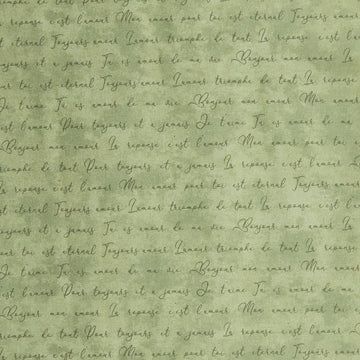 c'est l'amour Mon amour pour toi est eternal Toujours amour L'amour triomphe de tout La reponse
est eternal Toujours amour L'amour triomphe de tout La reponse c'est l'amour
toujours et a jamais Je t'aime Tu es amour de ma vie Bonjour mon amour Mon
La reponse c'est l'amour Mon amour pour toi est eternal Toujours amour
Je t'aime Tu es amour de ma vie Bonjour mon amour Mon
c'est l'amour Pour toujours et a jamais Je t'aime Tu es amour
Tu es amour de ma vie Bonjour mon amour
triomphe de tout Pour toujours et a jamais La reponse c'est l'amour
La reponse c'est l'amour Mon amour pour toi est eternal
amour pour toi est eternal Toujours amour L'amour triomphe de
toujours et a jamais Tu es amour de ma vie Bonjour mon
toi est eternal Toujours amour L'amour triomphe de tout La
Je t'aime Tu es amour de ma vie Bonjour mon amour
est l'amour Pour toujours et a jamais Je t'aime Tu es
amour de ma vie Bonjour mon amour
triomphe de tout Pour toujours et a jamais La reponse